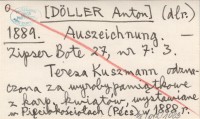 [DÖLLER Anton] (dlr.)
1889. Auszeichnung. —
Zipser Bote 27, nr 7: 3.
Teresa Kuszmann odzna-
czona za wyroby pamiątkowe
z karp. kwiatów, wystawiane
w Pięciokościołach (Pécs) 1888 r.